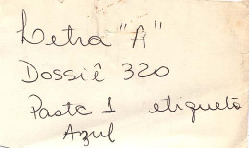 Letra "A"
Dossiê 320
Pasta 1 etiqueta
Azul